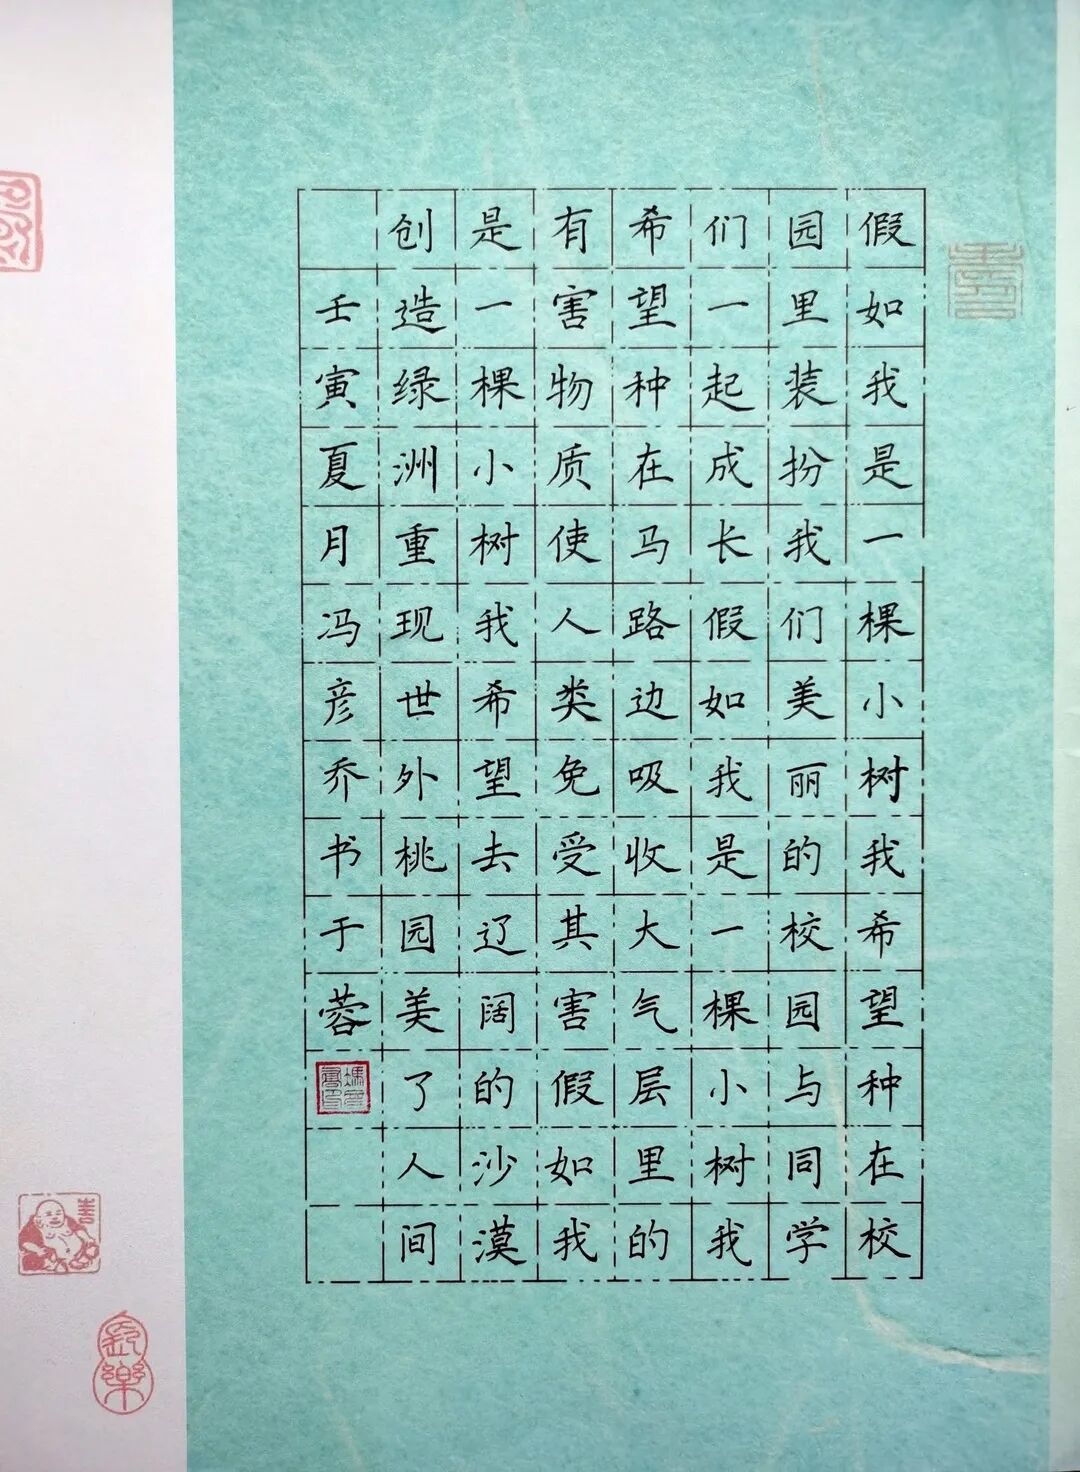 假如我是一棵小树我希望种在校
园里装扮我们美丽的校园与同学
们一起成长假如我是一棵小树我
希望种在马路边吸收大气层里的
有害物质使人类免受其害假如我
是一棵小树我希望去辽阔的沙漠
创造绿洲重现世外桃园美了人间
壬寅夏月冯彦乔书于蓉